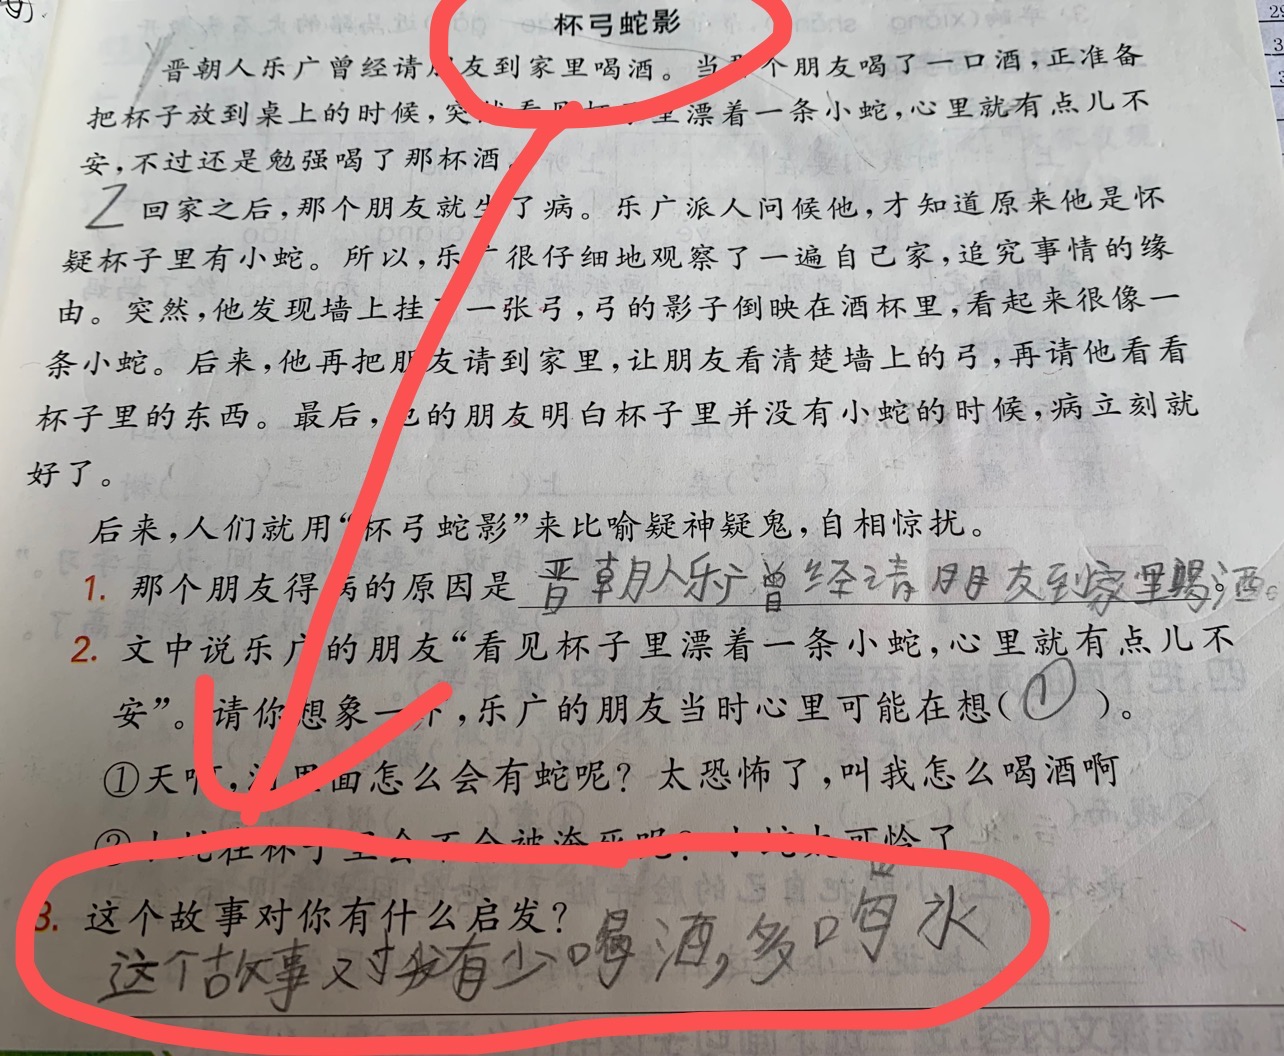 杯弓蛇影
晋朝人乐广曾经请朋友到家里喝酒。当那个朋友喝了一口酒,正准备
把杯子放到桌上的时候,突然看见杯子里漂着一条小蛇,心里就有点儿不
安,不过还是勉强喝了那杯酒。
2 回家之后,那个朋友就生了病。乐广派人问候他,才知道原来他是怀
疑杯子里有小蛇。所以,乐广很仔细地观察了一遍自己家,追究事情的缘
由。突然,他发现墙上挂了一张弓,弓的影子倒映在酒杯里,看起来很像一
条小蛇。后来,他再把朋友请到家里,让朋友看清楚墙上的弓,再请他看看
杯子里的东西。最后,他的朋友明白杯子里并没有小蛇的时候,病立刻就
好了。
后来,人们就用“杯弓蛇影”来比喻疑神疑鬼,自相惊扰。
1. 那个朋友得病的原因是晋朝人乐广曾经请朋友到家里喝酒。
2. 文中说乐广的朋友“看见杯子里漂着一条小蛇,心里就有点儿不
安”。请你想象一下,乐广的朋友当时心里可能在想(①)。
①天啊,酒里面怎么会有蛇呢?太恐怖了,叫我怎么喝酒啊
②小蛇在杯子里会不会被淹死呢?小蛇太可怜了
3. 这个故事对你有什么启发?
这个故事对我有少喝酒,多喝水